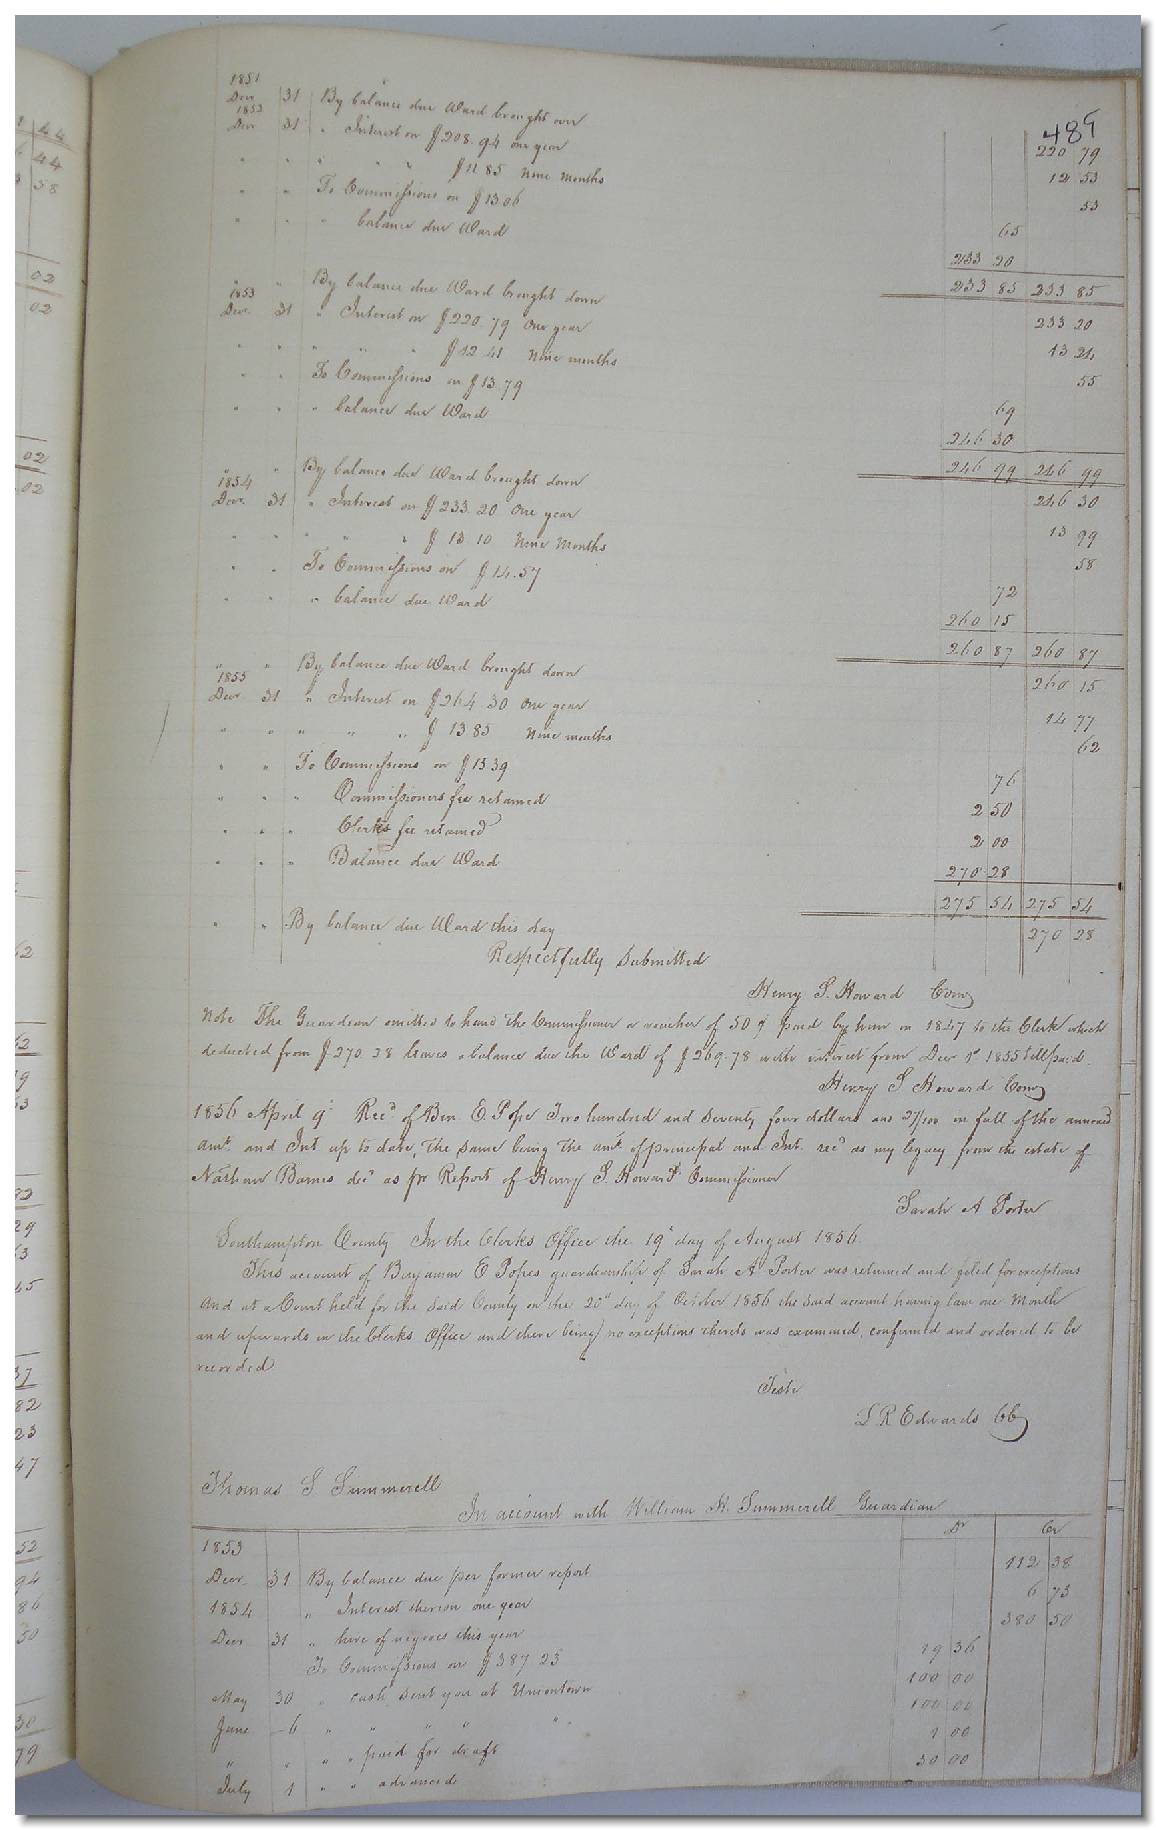 485
1851
Decr 31 By balance due Ward brought over 220 79
1852
Decr 31 " Interest on $208.94 one year 12 53
" " " " " $11.85 Nine Months 53
" " To Commissions on $13.06 65
" " " balance due Ward 233 20
233 85 233 85
" " By balance due Ward brought down 233 20
1853
Decr 31 " Interest on $220.79 One year 13 24
" " " " " $12.41 Nine months 55
" " To Commissions on $13.79 69
" " " balance due Ward 246 30
246 99 246 99
" " By balance due Ward brought down 246 30
1854
Decr 31 " Interest on $233.20 One year 13 99
" " " " " $13.10 Nine Months 58
" " To Commissions on $14.57 72
" " " balance due Ward 260 15
260 87 260 87
" " By balance due Ward brought down 260 15
1855
Decr 31 " Interest on $264.30 One year 14 77
" " " " " $13.85 Nine months 62
" " To Commissions on $15.39 76
" " " Commissioners fee retained 2 50
" " " Clerks fee retained 2 00
" " " Balance due Ward 270 28
275 54 275 54
" " By balance due Ward this day 270 28
Respectfully Submitted
Henry S. Howard Comr
Note The Guardian omitted to hand the Commissioner a voucher of 50 ¢ paid by him in 1847 to the Clerk which
deducted from $270.28 leaves a balance due the Ward of $269.78 with interest from Decr 1st 1855 till paid
Henry S Howard Comr
1856 April 9th Recd of Ben E. Pope Two hundred and Seventy four dollars and 27/100 in full of the annexed
amt. and Int up to date, The same being the amt of principal and Int. recd as my legacy from the estate of
Nathan Barnes decd as pr Report of Henry S. Howard Commissioner
Sarah A Porter
Southampton County In the Clerks Office the 19th day of August 1856.
This account of Benjamin E Popes guardianship of Sarah A Porter was returned and filed for exceptions
And at a Court held for the said County on the 20th day of October 1856 the said account having lain one Month
and upwards in the Clerks Office and there being no exceptions thereto was examined, confirmed and ordered to be
recorded
Teste
L R Edwards CC
Thomas S Summerell
In account with William H. Summerell Guardian
Dr Cr
1853
Decr 31 By balance due per former report 112 38
1854 " Interest thereon one year 6 73
Decr 31 " hire of negroes this year 380 50
To Commissions on $387 23 19 36
May 30 " cash sent you at Uniontown 100 00
June 6 " " " " " 100 00
" " " " paid for draft 1 00
July 1 " " advanced 30 00